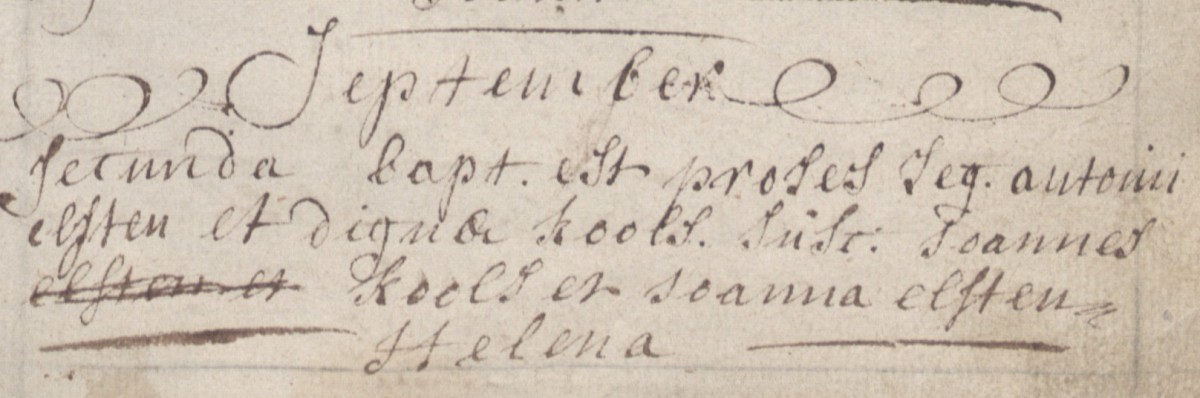 September
Secunda bapt. est proles Leg. antonii
elsten et dignæ kools. Susc: Joannes
elsten et kools et Joanna elsten
Helena